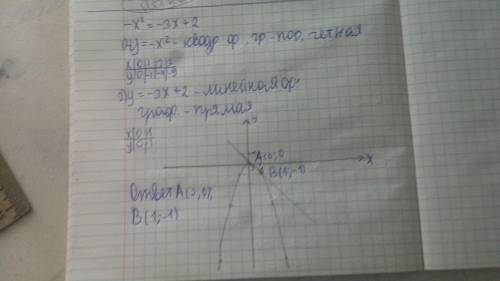 -x² = -3x+2
1)y=-x² - квадр ф, гр-пар, четная
x|0|1|2|3
y|0|-1|-4|-9
2)y = -3x+2 - линейная ф
граф. - прямая
x|0|1
y|0|-1
y
A(0;0)
x
B(1;-1)
Ответ A(0;0);
B(1;-1)